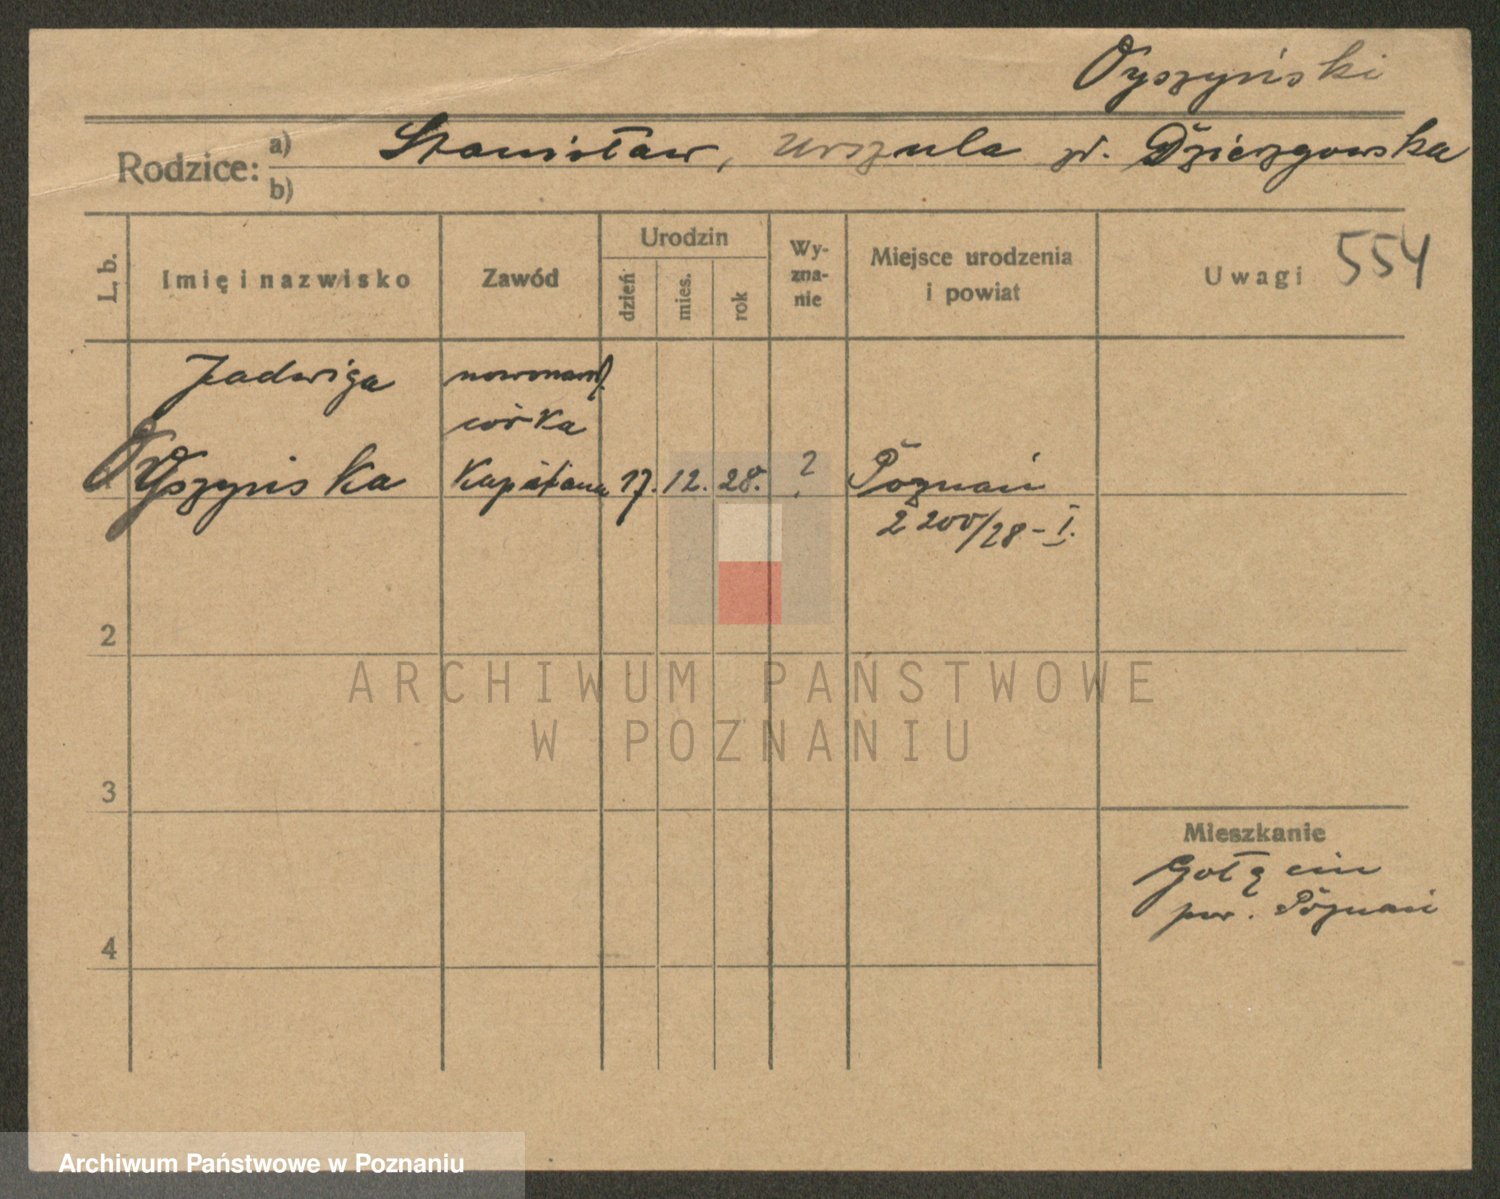 Oyszyński
Rodzice: a) Stanisław, Urszula zd. Dzierzgowska
b)
L. b.
Imię i nazwisko
Zawód
Urodzin
dzień
mies.
rok
Wy-
zna-
nie
Miejsce urodzenia
i powiat
Uwagi 554
Jadwiga
Oyszyńska
nowonarod.
córka
Kapitana
17. 12. 28. ?
Poznań
2200/28-I.
2
3
4
Mieszkanie
Gołęcin
pow. Poznań
ARCHIWUM PAŃSTWOWE
W POZNANIU
Archiwum Państwowe w Poznaniu